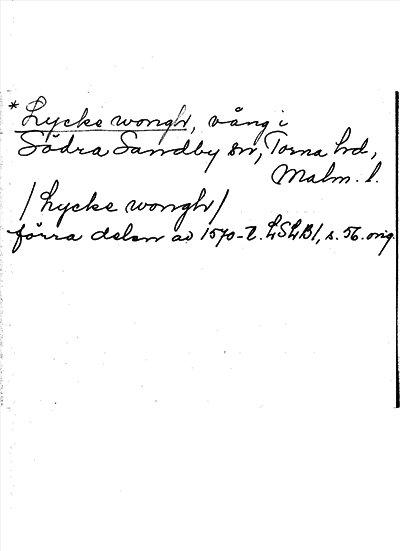 * Lycke wongh, vång i
Södra Sandby sn, Torna hd,
Malm. l.
/Lycke wongh/
förra delen av 1570-t. LSLB1, s. 56. orig.